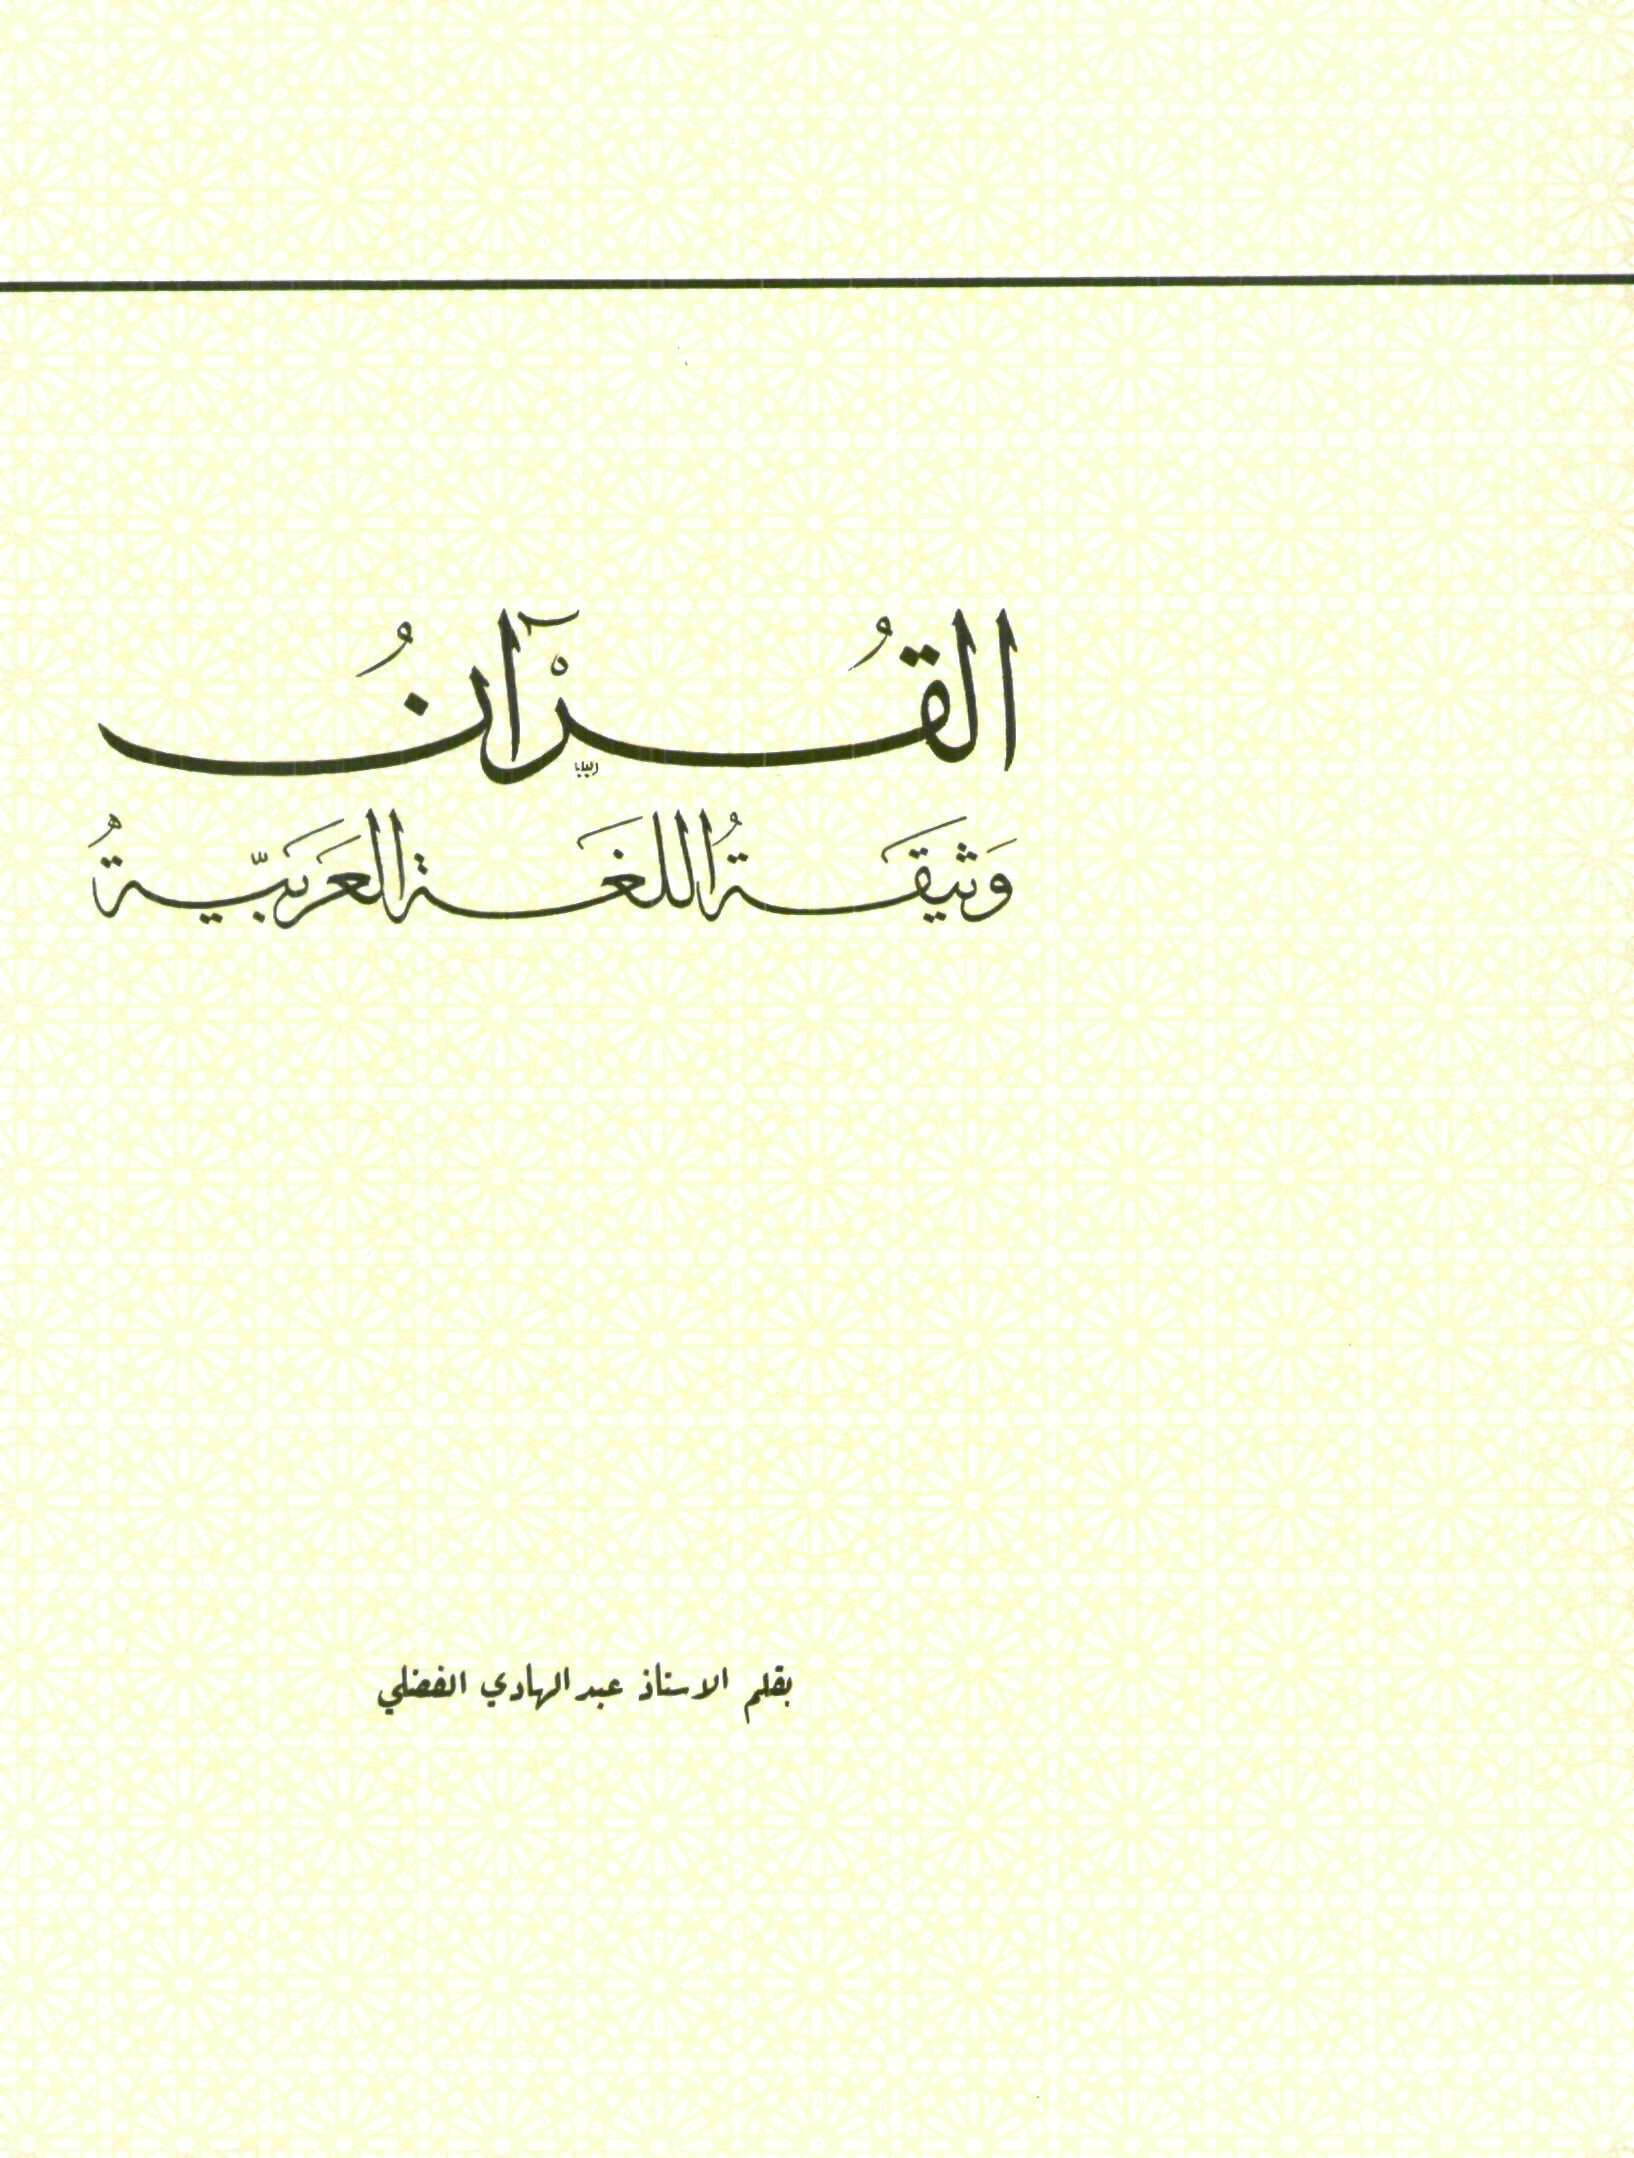 القُرْآنُ
وَثيقَةُ اللغَةِ العَرَبيّةُ
بقلم الاستاذ عبد الهادي الفضلي